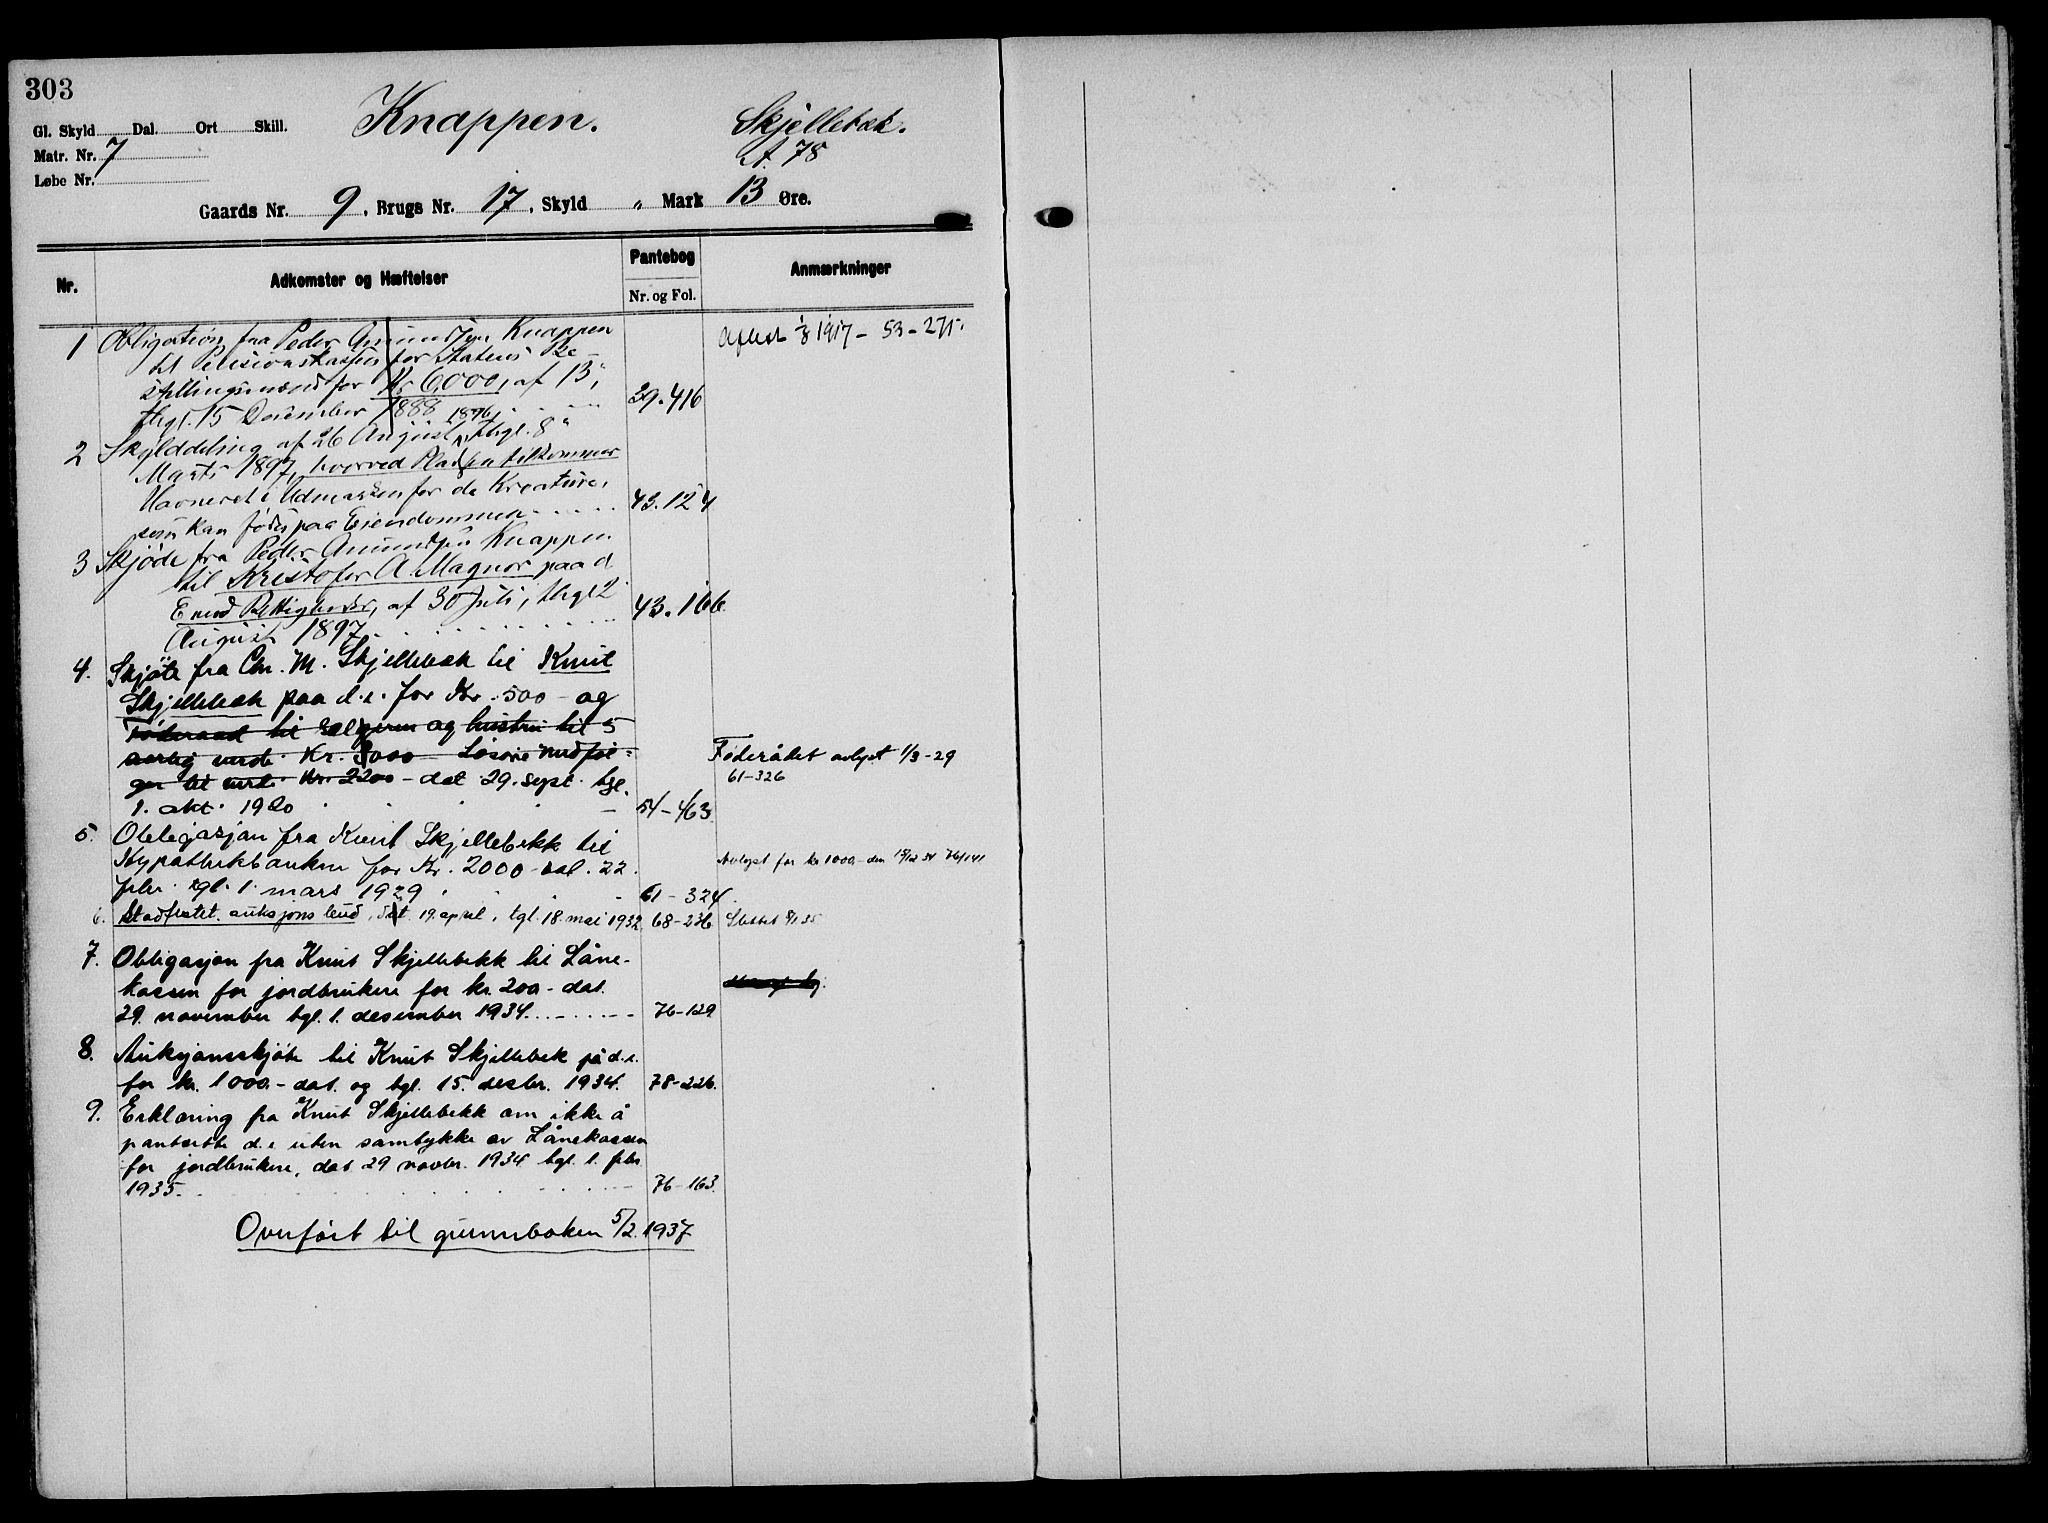 303
Gl. Skyld Dal. Ort Skill. Knappen. Skjellebæk.
Matr. Nr. 7 A. 78
Løbe Nr.
Gaards Nr. 9, Brugs Nr. 17, Skyld " Mark 13 Øre.
Nr. Adkomster og Hæftelser Pantebog Anmærkninger
Nr. og Fol.
1 Obligation fra Peder Amundsen Knappen Aflest 1917 - 53-275.
til Pensionskassen for Statens Be-
stillingsmænd for Kr 6000, af 13,
thgl. 15 December 1888 29.416
2 Skylddeling af 26 August 1896, thgl. 8
Marts 1897, hvorved Pladsen tilkommer
Havneret i Udmarken for de Kreature,
som kan fødes paa Eiendommen 43.124
3 Skjøde fra Peder Amundsen Knappen
til Kristofer A. Magnor paa d
E med Rettigheder, af 30 Juli, thgl 2
August 1897 43.166
4. Skjøte fra Chr. M. Skjellebæk til Knut
Skjellebæk paa d.e. for Kr. 500 - og
Føderaad til Sælgeren og hustru til 5
aarlig verdi Kr. 3000 Løsøre medføl-
ger til verdi Kr. 2200 - dat 29. sept. tgl. Føderådet avlyst 1/3-29
61-326
1. okt. 1920 54-463
5. Obligasjon fra Knut Skjellebekk til
Hypothekbanken for Kr. 2000 - dat. 22. Avlyst for kr 1000 - den 15/12 34 76/141
febr. tgl. 1. mars 1929 61-324.
6. Stadfestet auksjonsbud, dat. 19. april, tgl. 18. mai 1932 68-236 Slettet 8/1 35
7. Obligasjon fra Knut Skjellebekk til Låne-
kassen for jordbrukere for kr. 200 - dat.
29. november tgl. 1. desember 1934. 76-129
8. Auksjonsskjøte til Knut Skjellebek på d.e.
for kr. 1000.- dat. og tgl. 15. desbr. 1934. 78-226.
9. Erklæring fra Knut Skjellebekk om ikke å
pantsette d.e uten samtykke av Lånekassen
for jordbrukere, dat. 29 novbr. 1934 tgl. 1. febr
1935. 76-163.
Overført til grunnboken 5/2. 1937